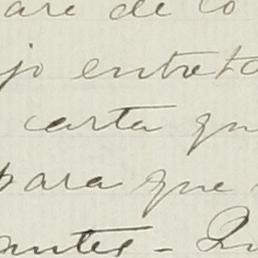 are de lo
jo entreta
carta qu
para que
antes - Qu